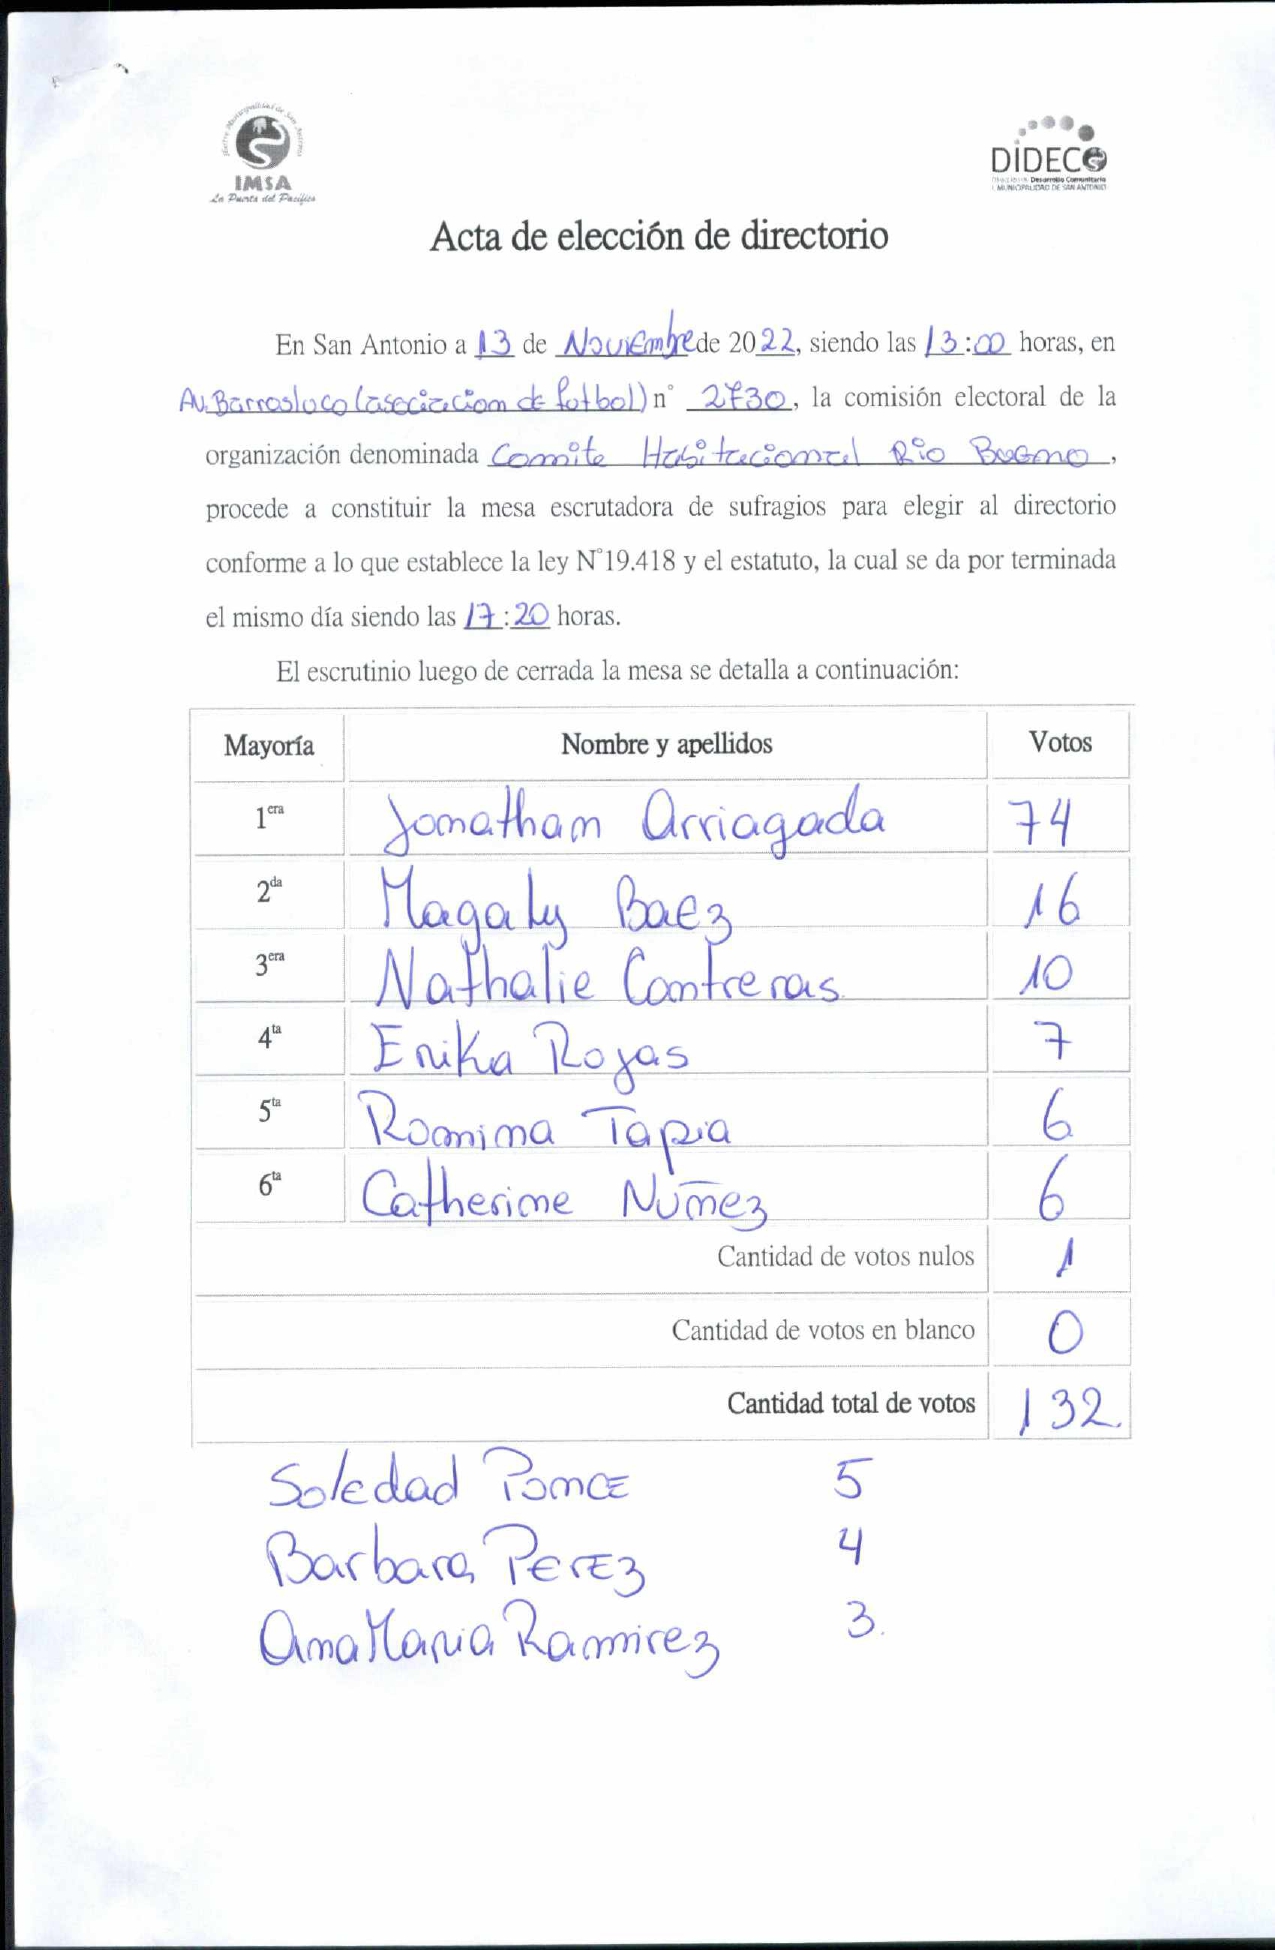 Ilustre Municipalidad de San Antonio
IMSA
La Puerta del Pacífico
DIDECO
Dirección Desarrollo Comunitario
I. MUNICIPALIDAD DE SAN ANTONIO
Acta de elección de directorio
En San Antonio a 13 de Noviembre de 2022, siendo las 13:00 horas, en
Av. Barrosluco (asociacion de futbol) n° 2730, la comisión electoral de la
organización denominada Comite Habitacional Rio Bueno,
procede a constituir la mesa escrutadora de sufragios para elegir al directorio
conforme a lo que establece la ley N°19.418 y el estatuto, la cual se da por terminada
el mismo día siendo las 17:20 horas.
El escrutinio luego de cerrada la mesa se detalla a continuación:
Mayoría Nombre y apellidos Votos
1era Jonathan Arriagada 74
2da Magaly Baez 16
3era Nathalie Contreras 10
4ta Erika Rojas 7
5ta Romina Tapia 6
6ta Catherine Nuñez 6
Cantidad de votos nulos 1
Cantidad de votos en blanco 0
Cantidad total de votos 132.
Soledad Ponce 5
Barbara Perez 4
Ana Maria Ramirez 3.